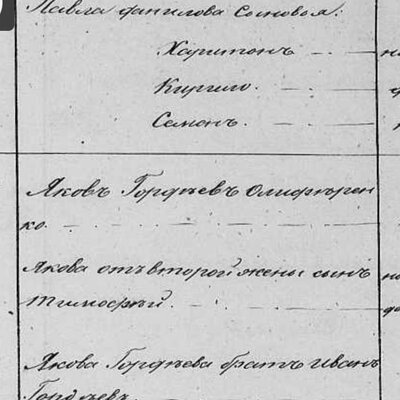 Павла Данилова Сыновья:
Харитонъ
Кирило.
Семенъ.
Яковъ Гордѣевъ Олиферен
ко.
Якова отъ второй жены сынъ
Тимофѣй.
Якова Гордѣева братъ Иванъ
Гордѣевъ